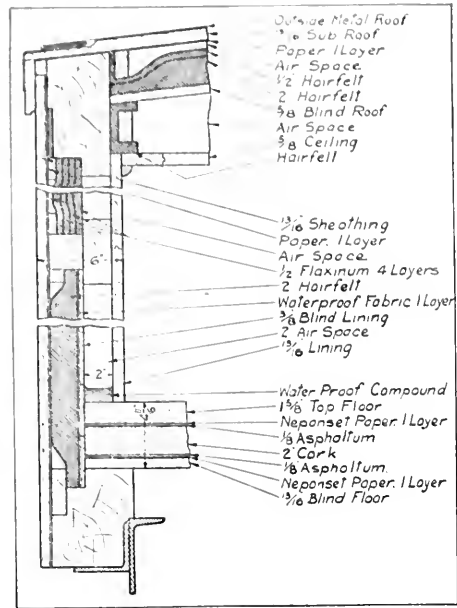 Outside Metal Roof
13/16 Sub Roof
Paper 1 Layer
Air Space
1/2 Hairfelt
2 Hairfelt
5/8 Blind Roof
Air Space
5/8 Ceiling
Hairfelt
13/16 Sheathing
Paper. 1 Layer
Air Space
1/2 Flaxinum 4 Layers
2 Hairfelt
Waterproof Fabric 1 Layer
3/8 Blind Lining
2" Air Space
13/16 Lining
6"
2"
Water Proof Compound
1 5/8" Top Floor
Neponset Paper. 1 Layer
1/8 Asphaltum
2" Cork
1/8 Asphaltum.
Neponset Paper. 1 Layer
13/16 Blind Floor